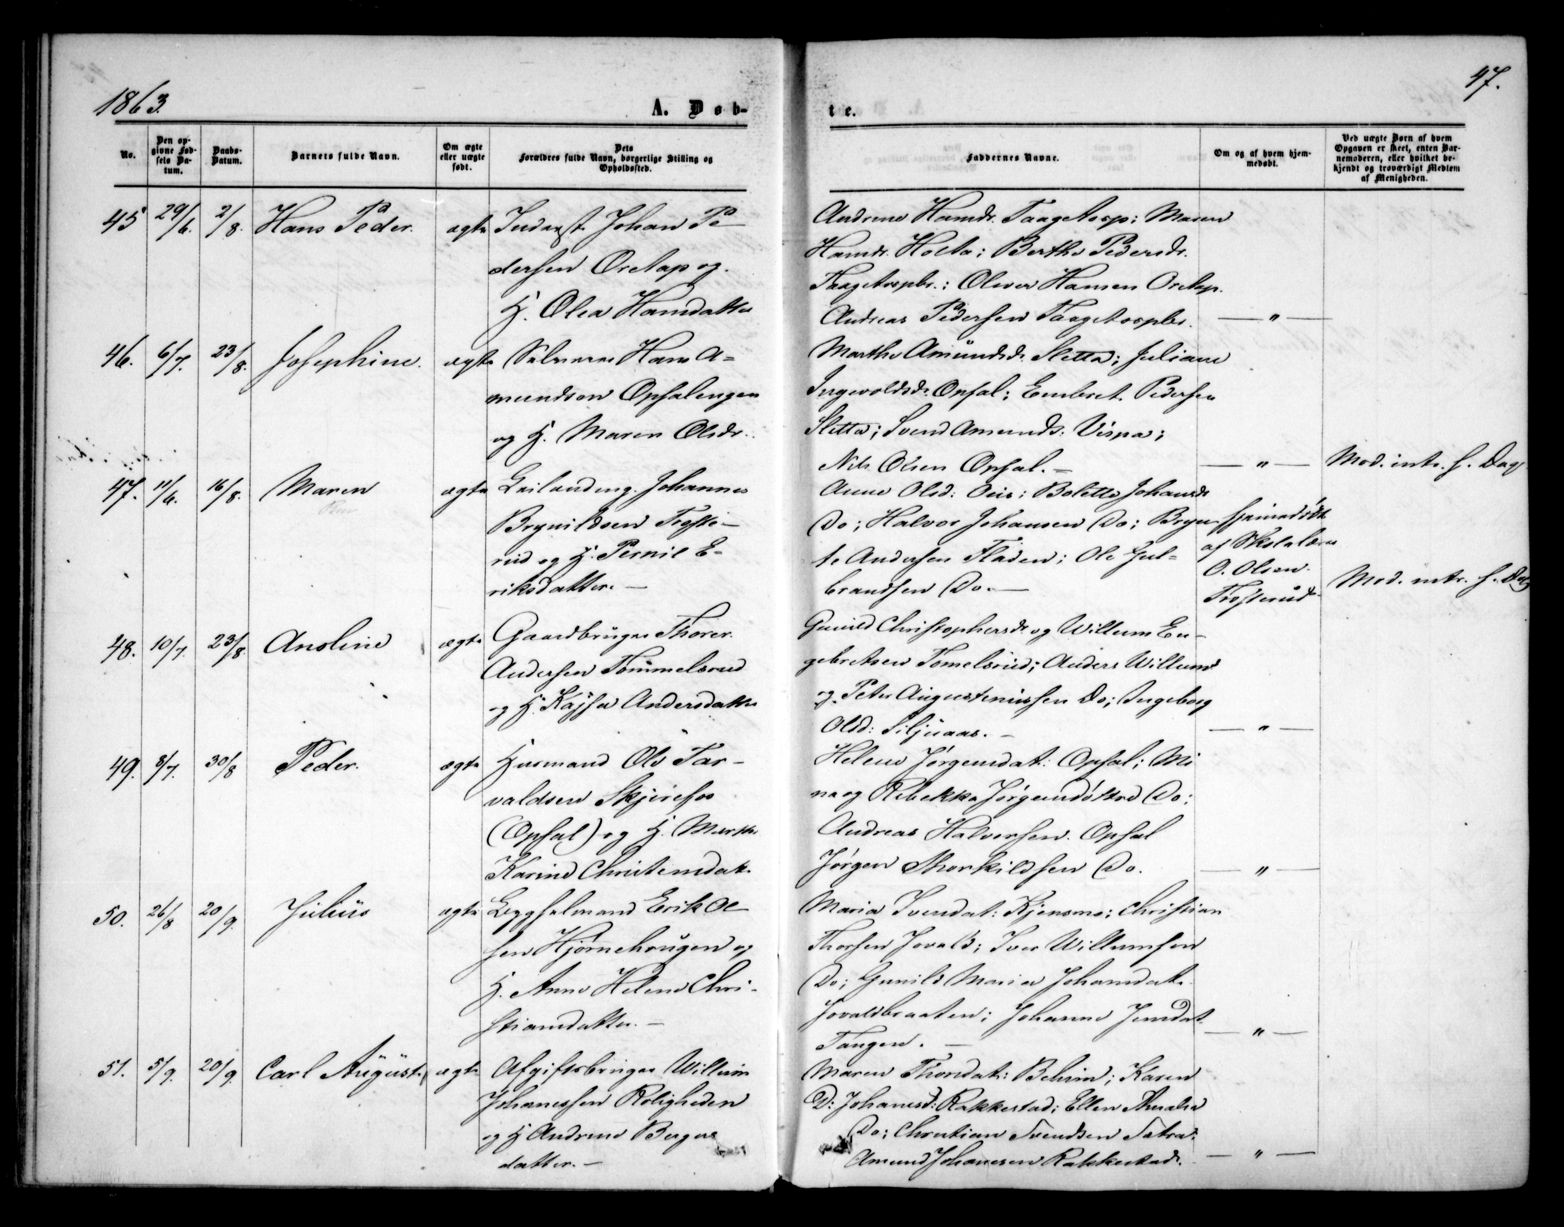 1863.
A. Døb-
te.
47.
No.
Den op-
givne Fød-
sels Da-
tum.
Daabs-
Datum.
Barnets fulde Navn.
Om ægte
eller uægte
født.
Dets
Forældres fulde Navn, borgerlige Stilling og
Opholdssted.
Faddernes Navne.
Om og af hvem hjem-
medøbt.
Ved uægte Børn af hvem
Opgaven er skeet, enten Bar-
nemoderen, eller hvilket be-
kjendt og troværdigt Medlem
af Menigheden.
45 29/6. 2/8. Hans Peder. ægte Johan Pe-
dersen og
H. Olea Hansdatter
Andrine Hansdr. Taagetorp; Maren
Hansdr. Holta; Berthe Pedersdr.
Taagetorpbr.; Oliver Hansen
Andreas Pedersen Taagetorpbr. — " —
46. 6/7. 23/8. Josephine. ægte Selveier Hans A-
mundsen Opsalengen
og H. Maren Olsdr.
Marthe Amundsdr. Sletta; Juliane
Ingevoldsdr. Opsal; Embret Pedersen
Sletta; Svend Amunds. Vispa;
Nils Olsen Opsal. — — " — Mod. intr. s. Dag
47. 11/6. 16/8. Maren ægte Leilænding Johannes
Brynildsen Troste-
rud og H. Pernil E-
riksdatter. —
Anne Olsd: Ous; Bolette Johansdr
Do; Halvor Johansen Do; Bryn-
Andersen Fladen; Ole Gul-
brandsen Do. —
hjemmedøbt
af Skolelærer
O. Olsen
Trosterud. Mod. intr. s. Dag
48. 10/7. 23/8. Anoline ægte Gaardbruger Thorer
Andersen Tømmelsrud
og H. Kajsa Andersdatter
Gunild Christophersdr og Willum En-
gebretsen Tomelsrud; Anders Willums
og Peter Augustinussen Do; Ingeborg
Olsd: Siljuaas. — — " —
49. 8/7. 30/8 Peder. ægte Husmand Ole Tar-
valdsen Skjirefos
(Opsal) og H. Marthe
Karine Christensdatt.
Helene Jørgensdat: Opsal; Mi
na og Rebekka Jørgensdøttre Do;
Andreas Halvorsen Opsal
Jørgen Thorkildsen Do. — " —
50. 26/8 20/9. Julius ægte Byggselmand Erik Ol-
sen Hjørnehougen og
H. Anne Helene Chri-
stiansdatter. —
Maria Svendat: Kjensmo; Christian
Thorsen Jovald; Iver Willumsen
Do; Gunild Maria Johansdat:
Jovaldbraaten; Johanne Jensdat
Tangen. — — " —
51. 5/9. 20/9. Carl August ægte Afgiftsbruger Willum
Johannessen Roligheden
og H Andrine Berger
datter. —
Maren Thorsdat: ; Karen
D: Johanesd: Rakkestad; Ellen Amalia
Do; Christian Svendsen Sætra;
Amund Johanesen Rakkestad. — " —